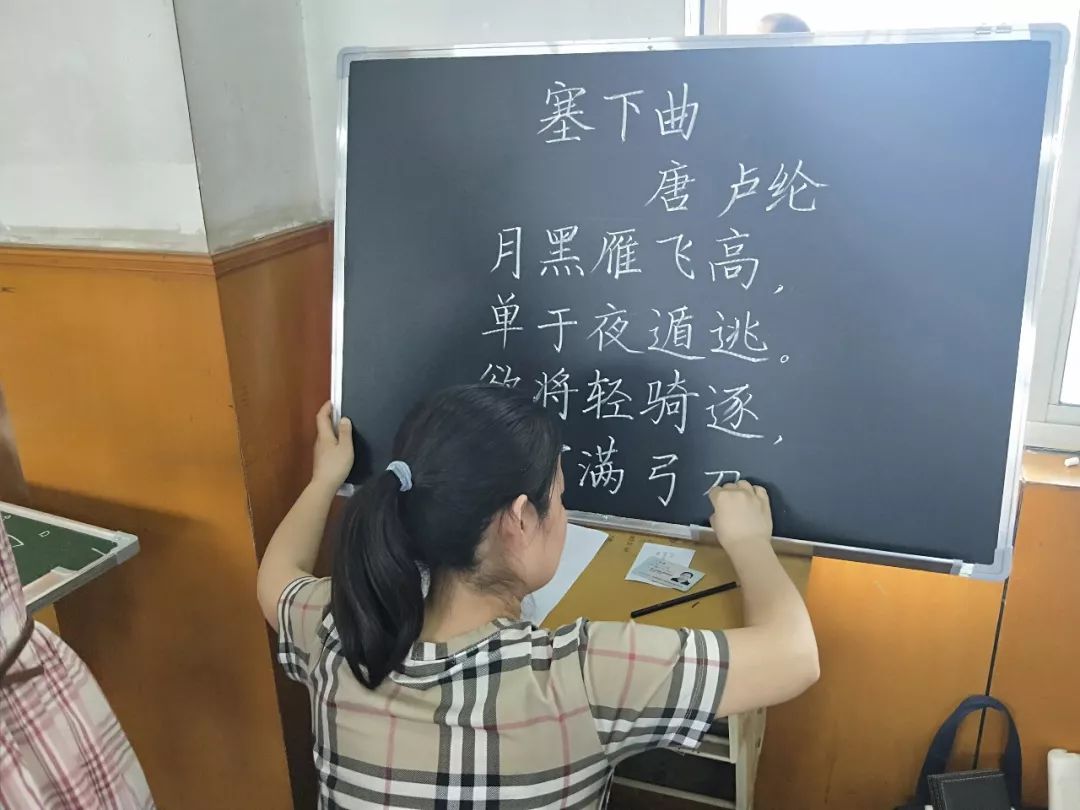 塞下曲
唐 卢纶
月黑雁飞高，
单于夜遁逃。
欲将轻骑逐，
满弓刀